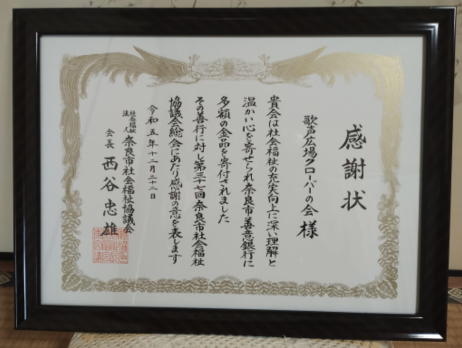 感謝状
歌声広場クローバーの会 様
貴会は社会福祉の充実向上に深い理解と
温かい心を寄せられ奈良市善意銀行に
多額の金品を寄付されました
その善行に対し第三十七回奈良市社会福祉
協議会総会にあたり感謝の意を表します
令和五年十二月二十二日
社会福祉法人 奈良市社会福祉協議会
会長 西谷忠雄